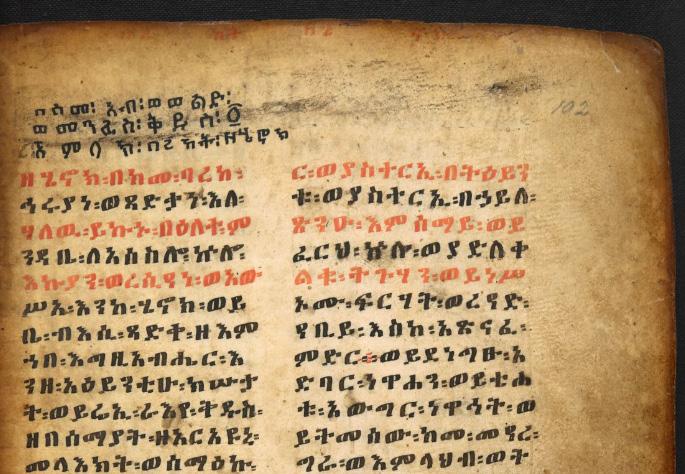 በስመ፡ አብ፡ ወወልድ፡
ወመንፈስ፡ ቅዱስ፡ ፩
አምላክ፡ በረከት፡ ዘሄኖክ
102
ዘሄኖክ፡ በከመ፡ ባረከ፡
ኅሩያነ፡ ወጻድታን፡ እለ፡
ሃለዉ፡ ይኩኑ፡ በዕለተ፡ ም
ንዳቤ፡ ለአሰስሎ፡ ኵሎ፡
እኩያን፡ ወረሲዓነ፡ ወአው
ሥአ፡ እንከ፡ ሄኖክ፡ ወይ
ቤ፡ ብእሲ፡ ጻድቅ፡ ዘእም
ኀበ፡ እግዚአብሔር፡ እ
ንዘ፡ አዕይንቲሁ፡ ክሡታ
ት፡ ወይሬኢ፡ ራእየ፡ ቅዱስ፡
ዘበሰማያት፡ ዘአርአዩኒ፡
መላእክት፡ ወሰማዕኩ፡
ር፡ ወያስተርኢ፡ በትዕይን
ቱ፡ ወያስተርኢ፡ በኃይለ፡
ጽንዑ፡ እምሰማይ፡ ወይ
ፈርህ፡ ኵሉ፡ ወያድለቀ
ልቁ፡ ትጉሃን፡ ወይነሥ
ኦሙ፡ ፍርሃት፡ ወረዓድ፡
ዓቢይ፡ እስከ፡ አጽናፈ፡
ምድር፡ ወይደነግፁ፡ አ
ድባር፡ ነዋኀን፡ ወይቴሐ
ቱ፡ አውግር፡ ነዋኃት፡ ወ
ይትመሰው፡ ከመ፡ መዓረ፡
ግራ፡ ወእምላህብ፡ ወት